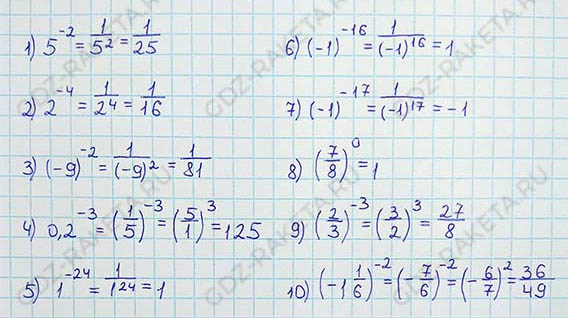 1) 5^-2 = 1/5^2 = 1/25
2) 2^-4 = 1/2^4 = 1/16
3) (-9)^-2 = 1/(-9)^2 = 1/81
4) 0,2^-3 = (1/5)^-3 = (5/1)^3 = 125
5) 1^-24 = 1/1^24 = 1
6) (-1)^-16 = 1/(-1)^16 = 1
7) (-1)^-17 = 1/(-1)^17 = -1
8) (7/8)^0 = 1
9) (2/3)^-3 = (3/2)^3 = 27/8
10) (-1 1/6)^-2 = (-7/6)^-2 = (-6/7)^2 = 36/49
GDZ-RAKETA.RU